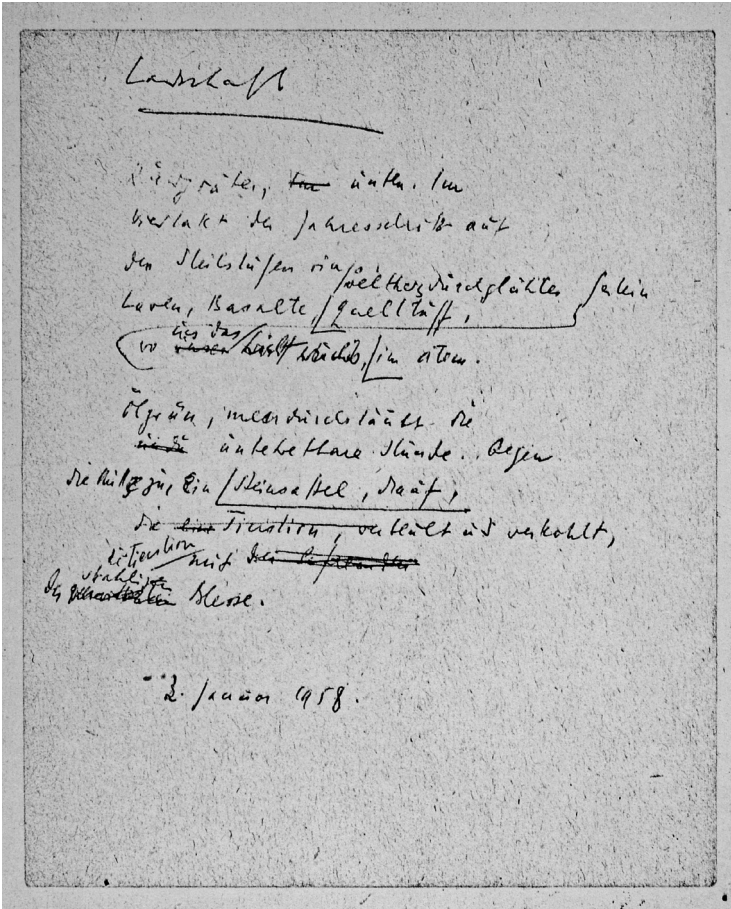 Landschaft
Rundgräber, unten. Im
Viertakt der Jahresschritt auf
den Steilstufen rings weltherzdurchglühtes Gestein
Laven, Basalte, Quelltuff,
uns das
wo unser Licht wuchs, im Atem.
Ölgrün, meerdurchstäubt die
unbetretbare Stunde. Gegen
die Mitte zu, ein Steinsattel, drauf,
die eine Tierstirn, verbeult und verkohlt,
die Tierstirn mit der
strahligen
der Blesse.
2. Januar 1958.